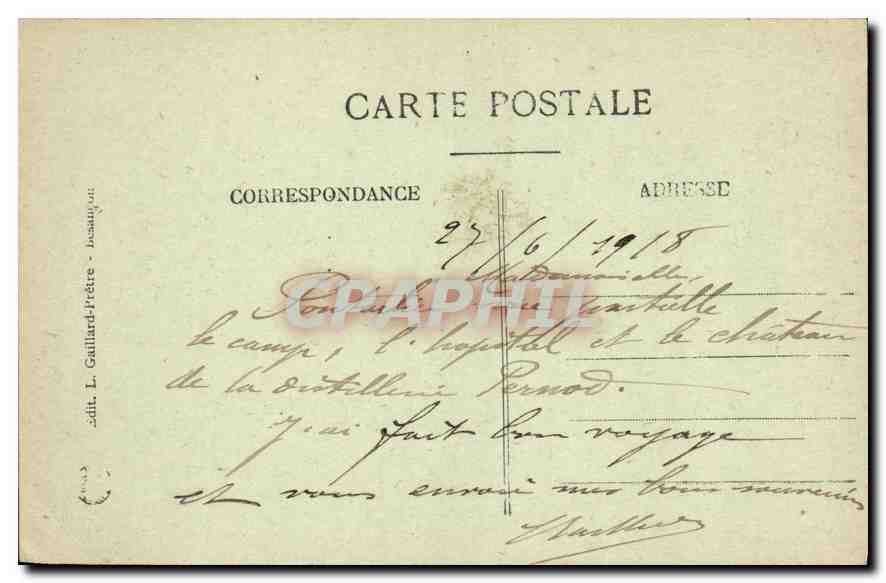 CARTE POSTALE
CORRESPONDANCE
ADRESSE
27/6/1918
Mademoiselle,
Pontarlier vue partielle
le camp, l'hopital et le château
de la distillerie Pernod.
J'ai fait bon voyage
et vous envoie mes bons souvenirs
Edit. L. Gaillard-Prêtre - Besançon
CPAPHIL